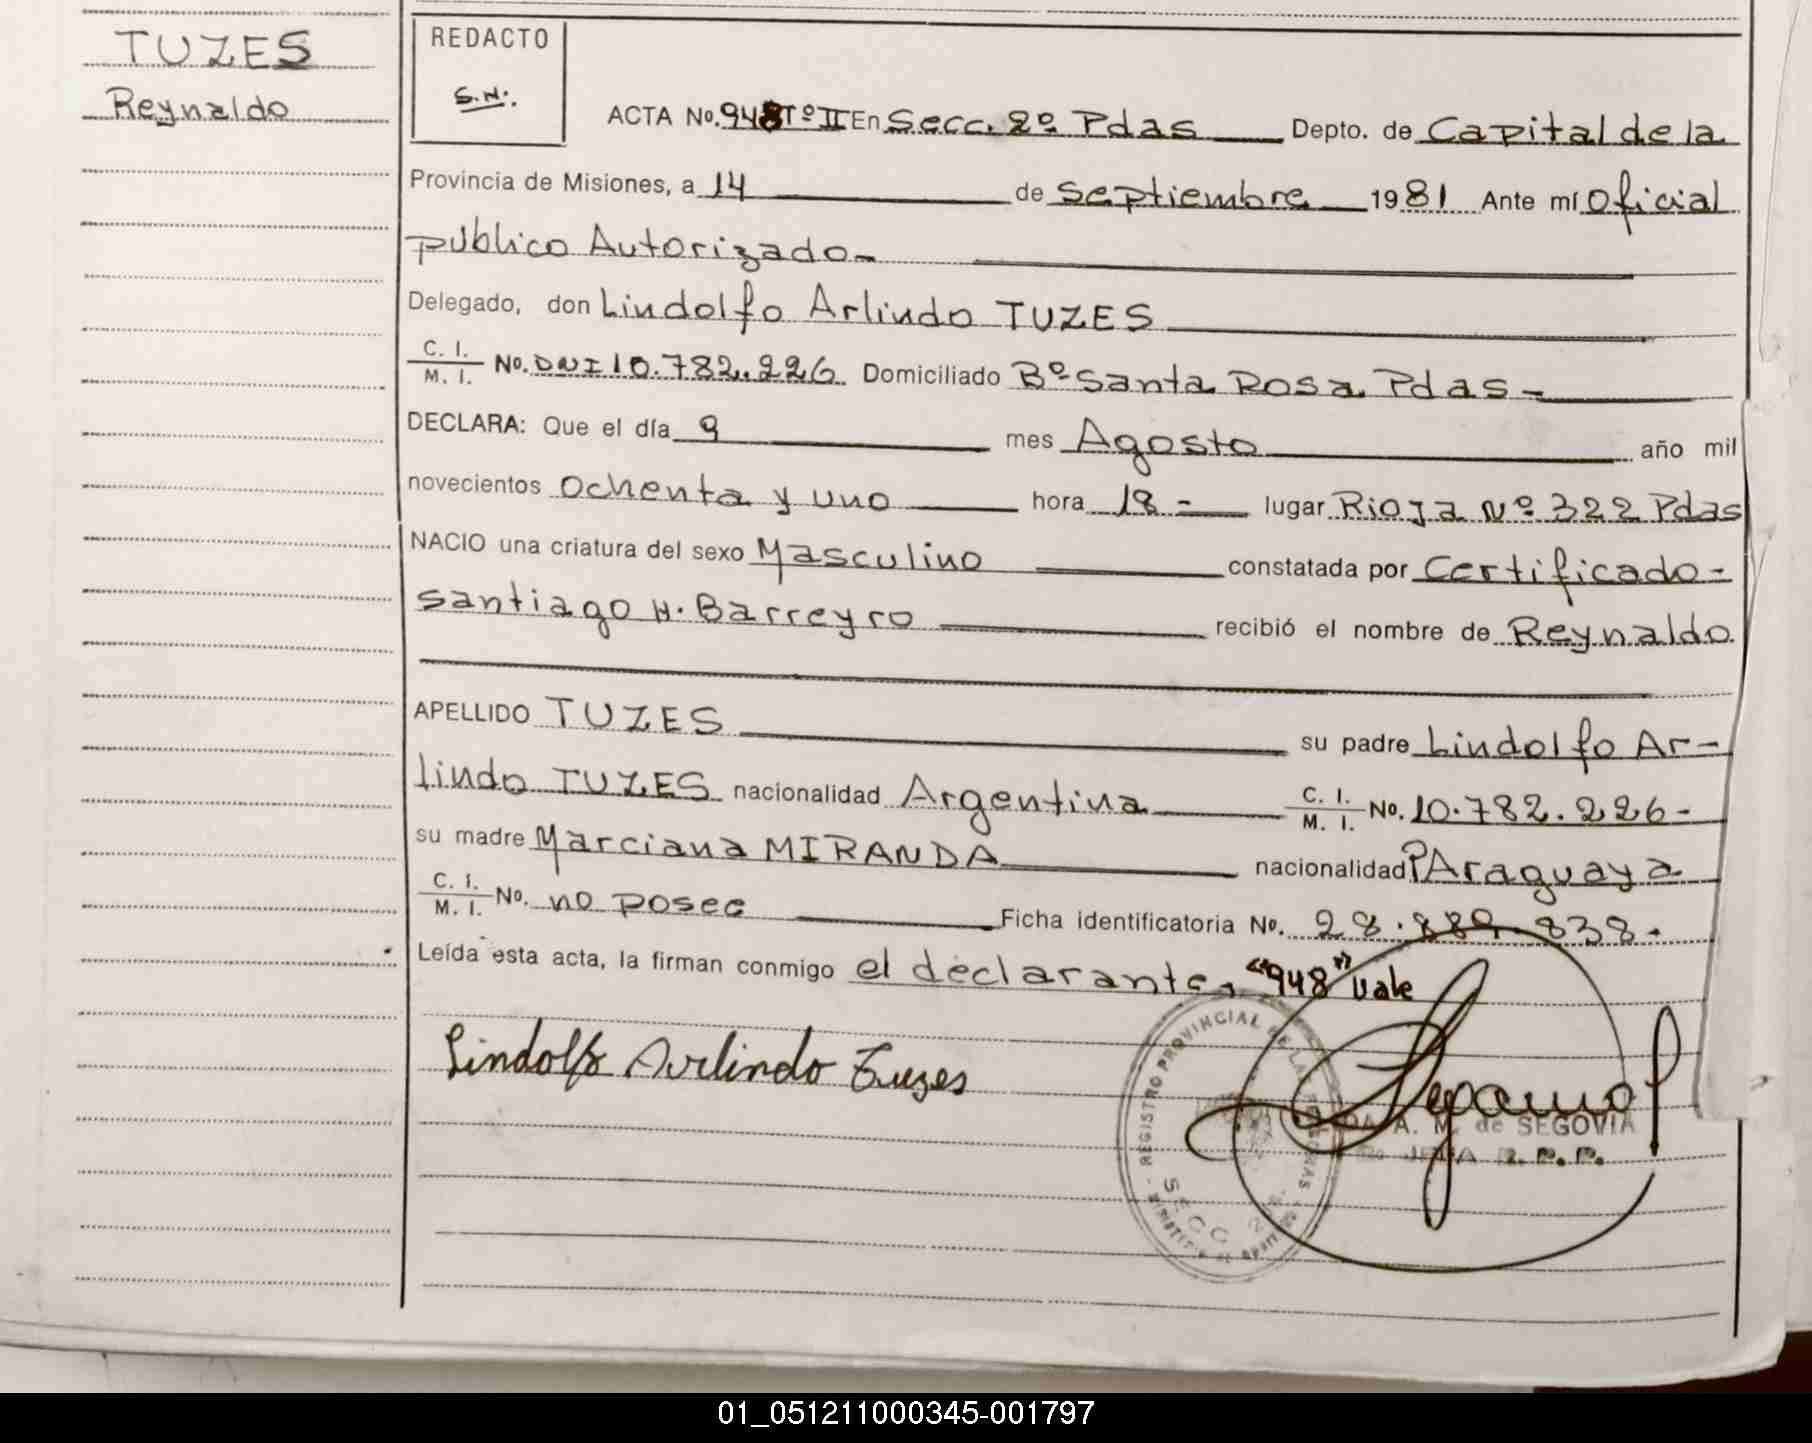 TUZES
Reynaldo
REDACTO
S.N.
ACTA No. 948 Tº II En Secc. 2º Pdas Depto. de Capital de la
Provincia de Misiones, a 14 de Septiembre 1981 Ante mí Oficial
público Autorizado-
Delegado, don Lindolfo Arlindo TUZES
C. I. / M. I. No. DNI 10.782.226 Domiciliado Bº Santa Rosa Pdas-
DECLARA: Que el día 9 mes Agosto año mil
novecientos ochenta y uno hora 18- lugar Rioja Nº 322 Pdas
NACIO una criatura del sexo Masculino constatada por Certificado-
Santiago H. Barreyro recibió el nombre de Reynaldo
APELLIDO TUZES su padre Lindolfo Ar-
lindo TUZES nacionalidad Argentina C. I. / M. I. No. 10.782.226-
su madre Marciana MIRANDA nacionalidad PAraguaya
C. I. / M. I. No. no posee Ficha identificatoria No. 28.889.838.
Leída esta acta, la firman conmigo el declarante, "948" Vale
Lindolfo Arlindo Tuzes
REGISTRO PROVINCIAL DE LAS PERSONAS
SECC
A. M. de SEGOVIA
JEFA R. P. P.
01_051211000345-001797